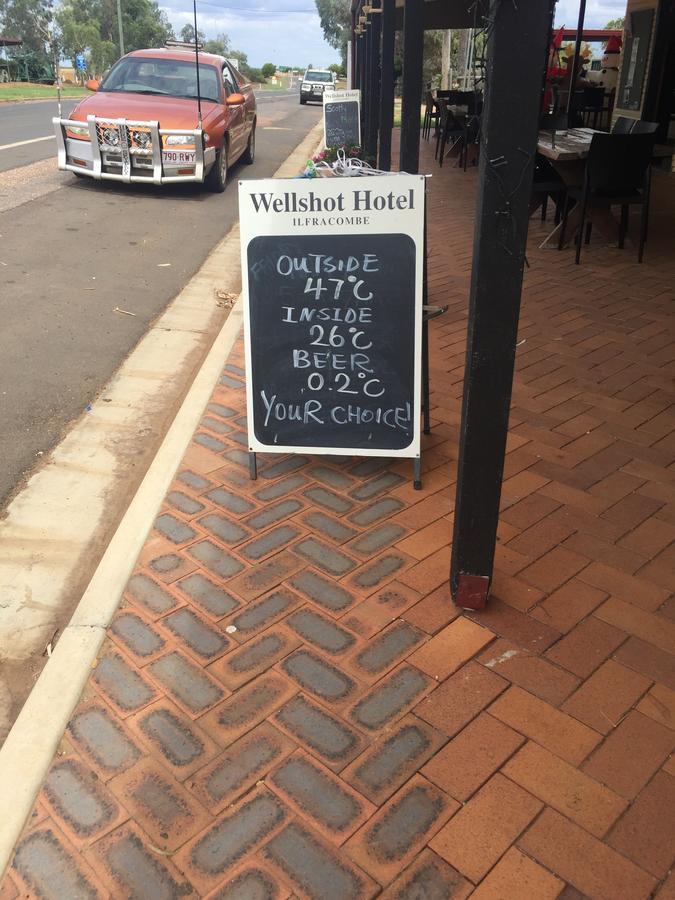 Wellshot Hotel
ILFRACOMBE
OUTSIDE
47°C
INSIDE
26°C
BEER
0.2°C
YOUR CHOICE!
Wellshot Hotel
790 RWY